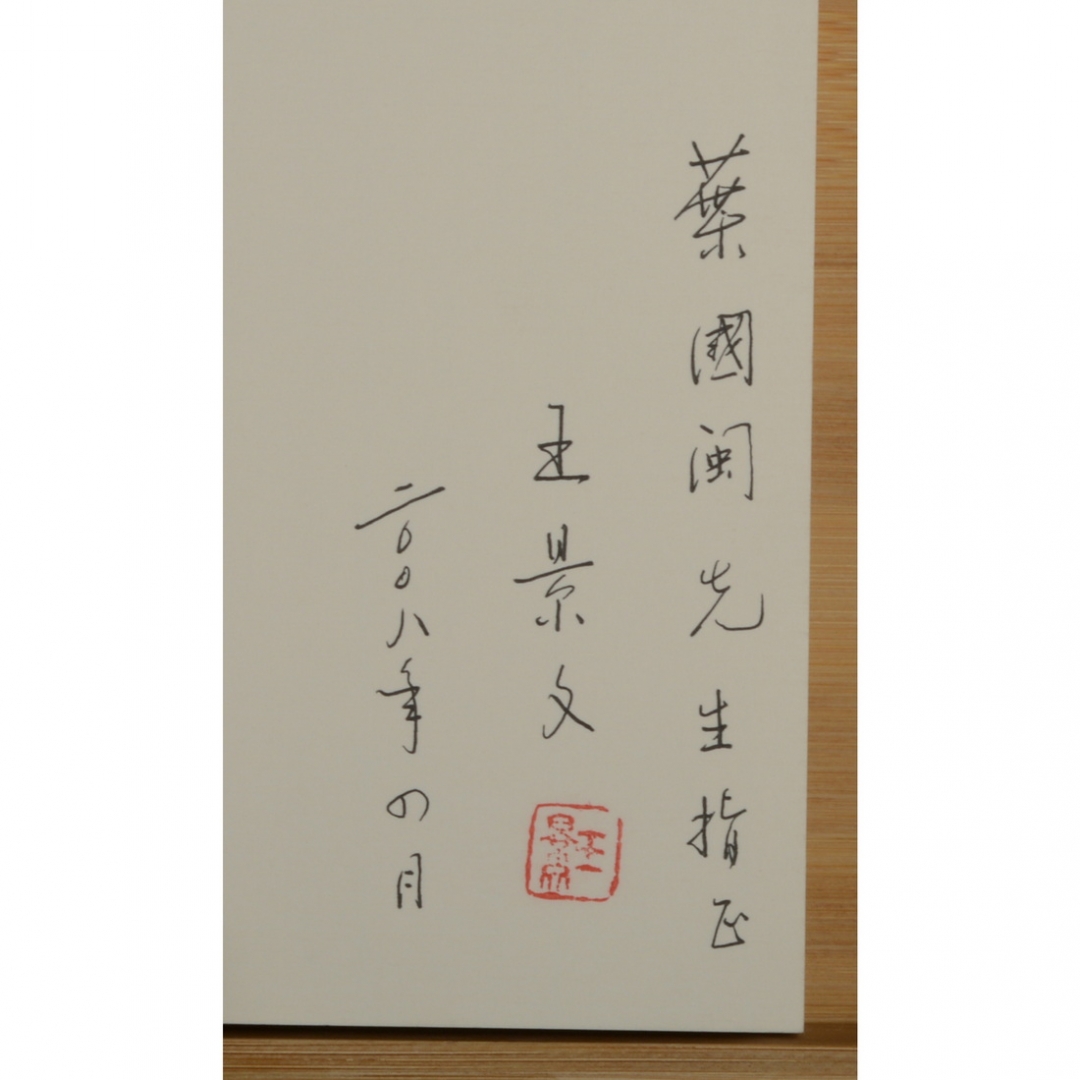 葉國闽先生指正
王景文
二〇〇八年四月